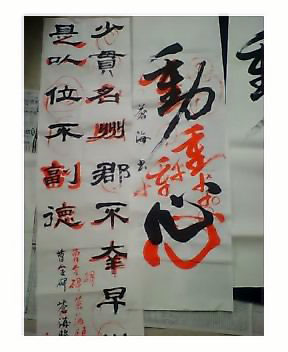 動心
蒼海
少貫名州郡不幸早
是以位不副德
曹全碑 蒼海臨